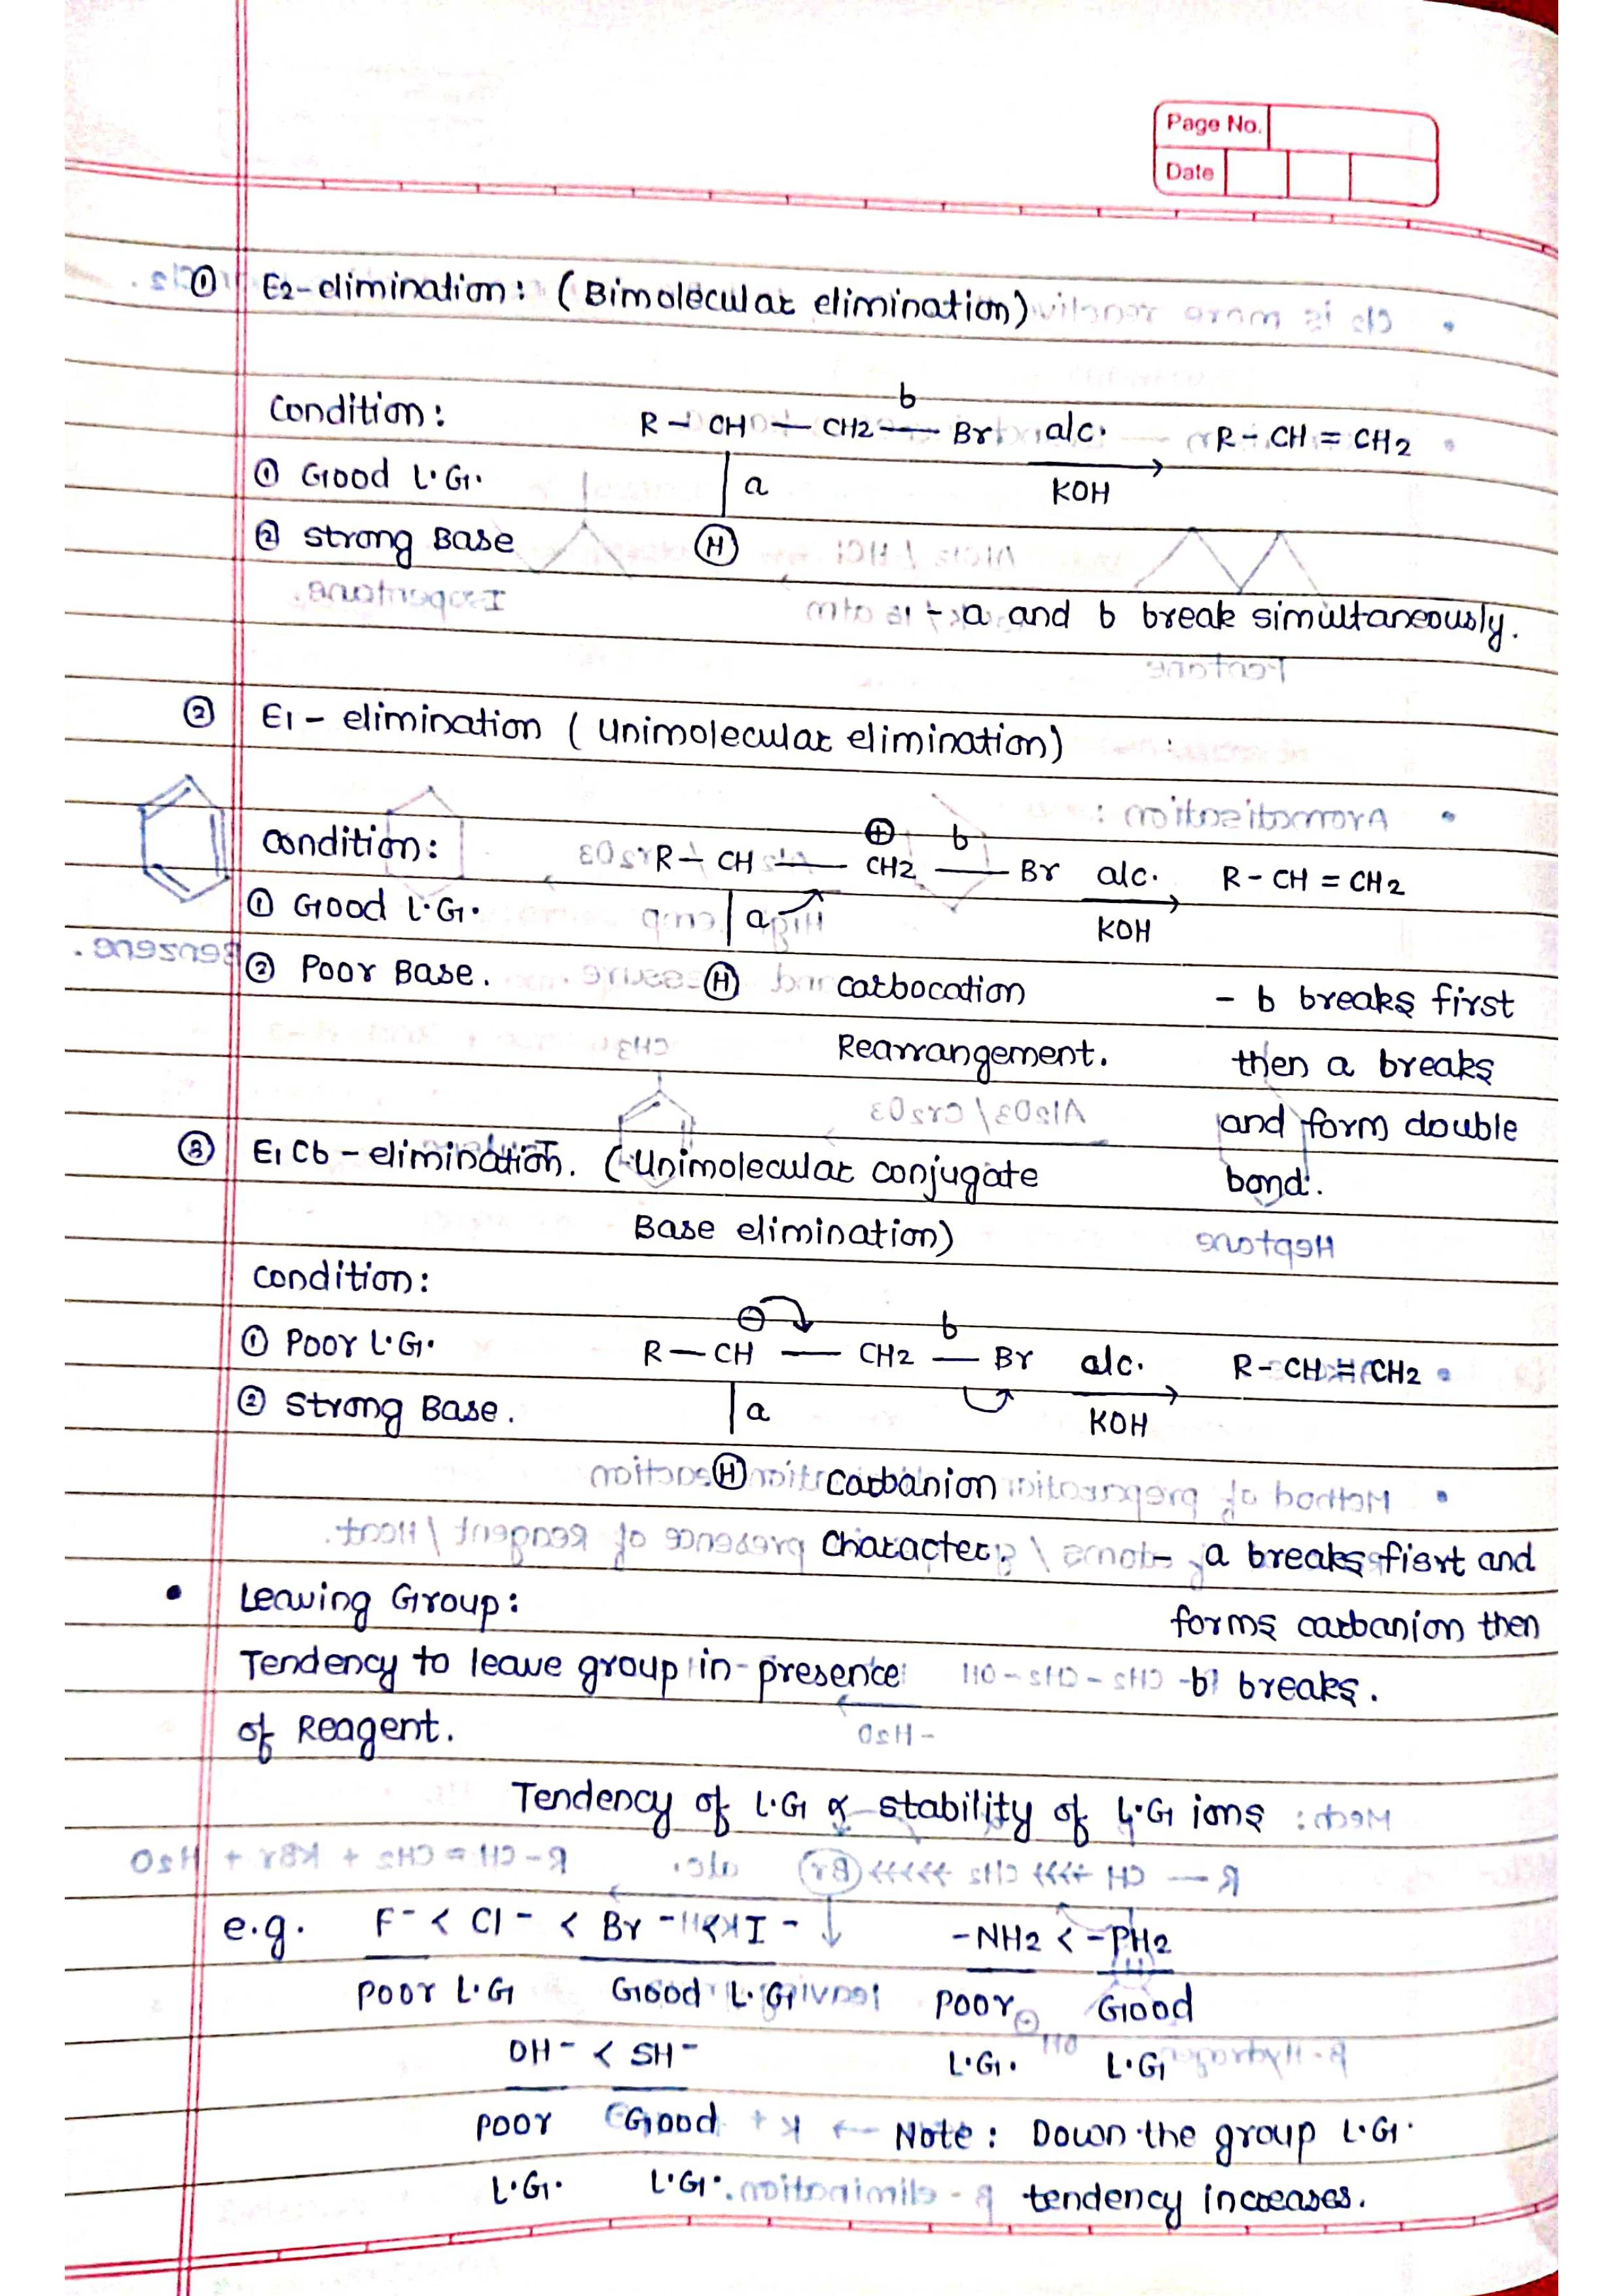 Page No.
Date
① E2-elimination: (Bimolecular elimination)
Condition:
b
R - CH - CH2 - Br alc. R - CH = CH2
① Good L.G.
a
KOH
② Strong Base
H
- a and b break simultaneously.
② E1 - elimination (Unimolecular elimination)
Condition:
⊕ b
R - CH - CH2 - Br alc. R - CH = CH2
① Good L.G.
a
KOH
② Poor Base.
H
carbocation
Rearrangement.
- b breaks first
then a breaks
and form double
bond.
③ E1Cb - elimination. (Unimolecular conjugate
Base elimination)
Condition:
⊖ b
R - CH - CH2 - Br alc. R - CH = CH2
① Poor L.G.
a
KOH
② Strong Base.
H
carbanion
character.
- a breaks fisrt and
forms carbanion then
b breaks.
• Leaving Group:
Tendency to leave group in presence
of Reagent.
Tendency of L.G ∝ stability of L.G ions
e.g. F- < Cl- < Br- < I- -NH2 < -PH2
Poor L.G Good L.G Poor Good
L.G. L.G
OH- < SH-
Poor Good
L.G. L.G.
Note: Down the group L.G.
tendency increases.